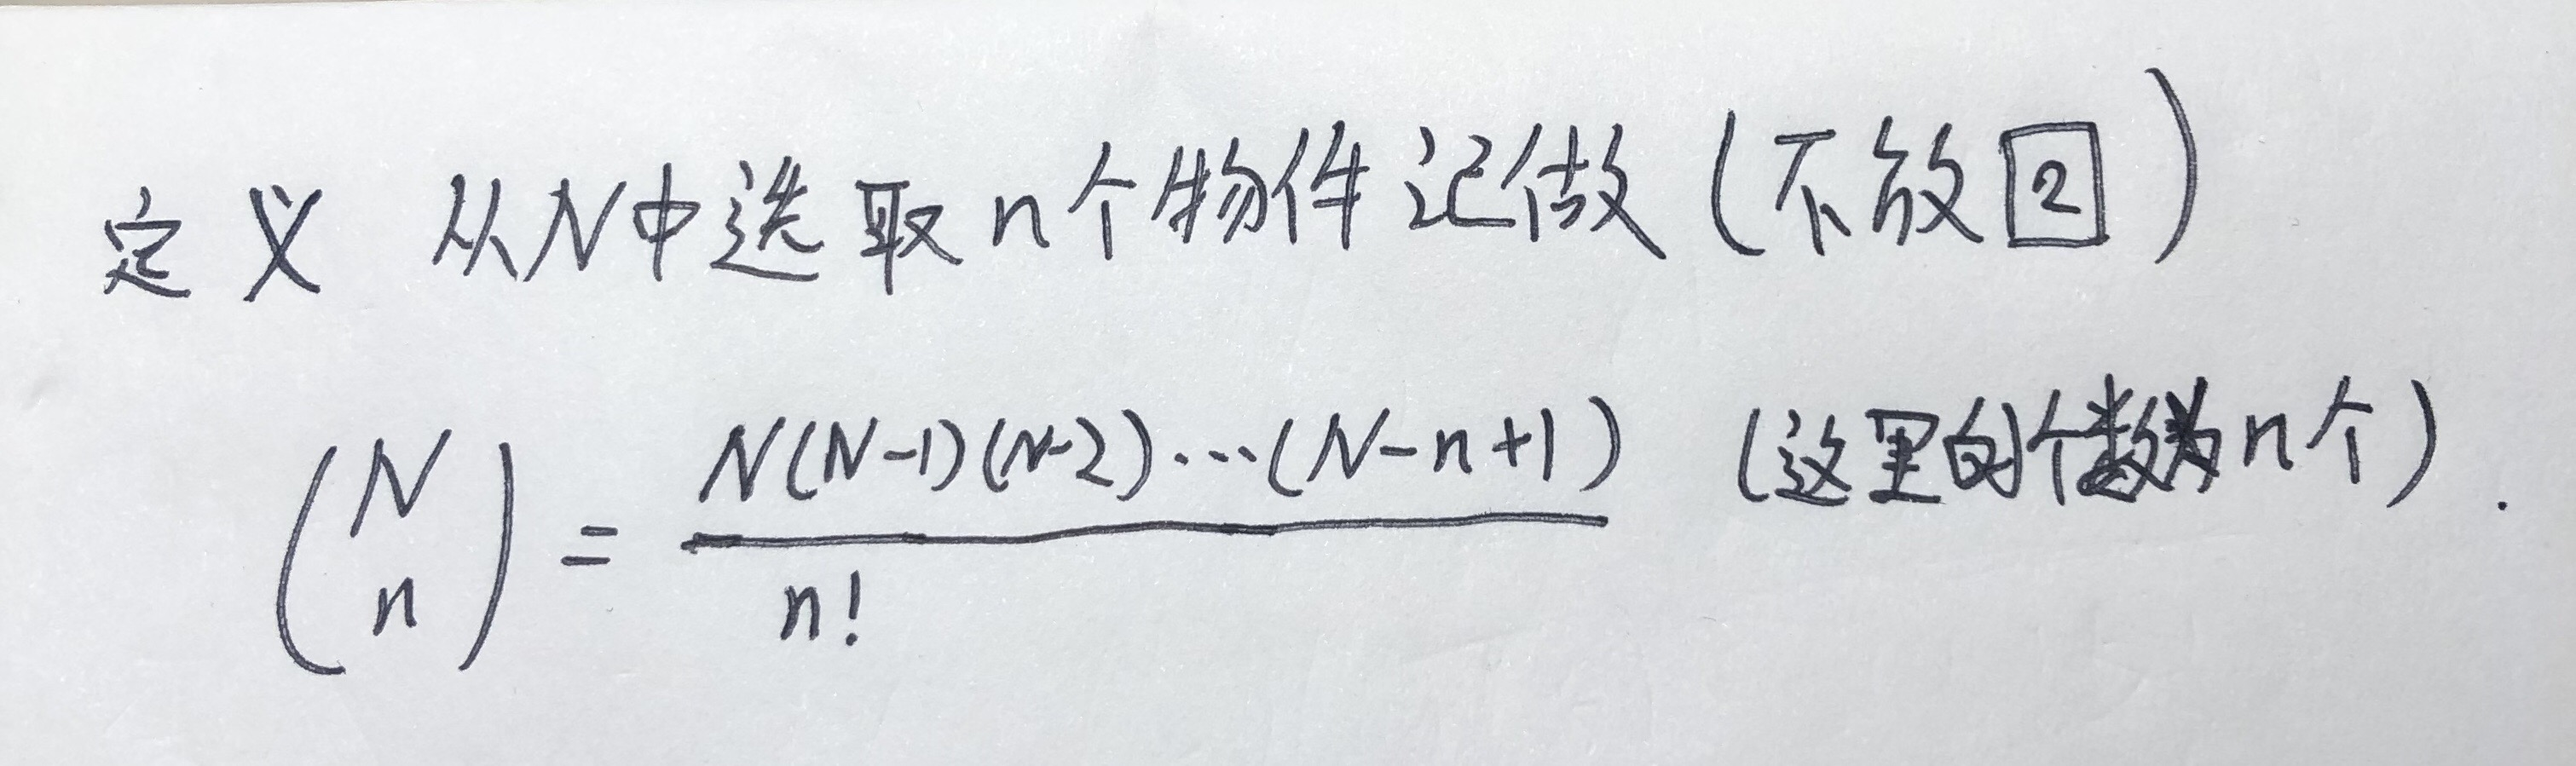 定义 从N中选取n个物件记做(不放回)
(N n) = N(N-1)(N-2)···(N-n+1) / n! (这里的个数为n个).